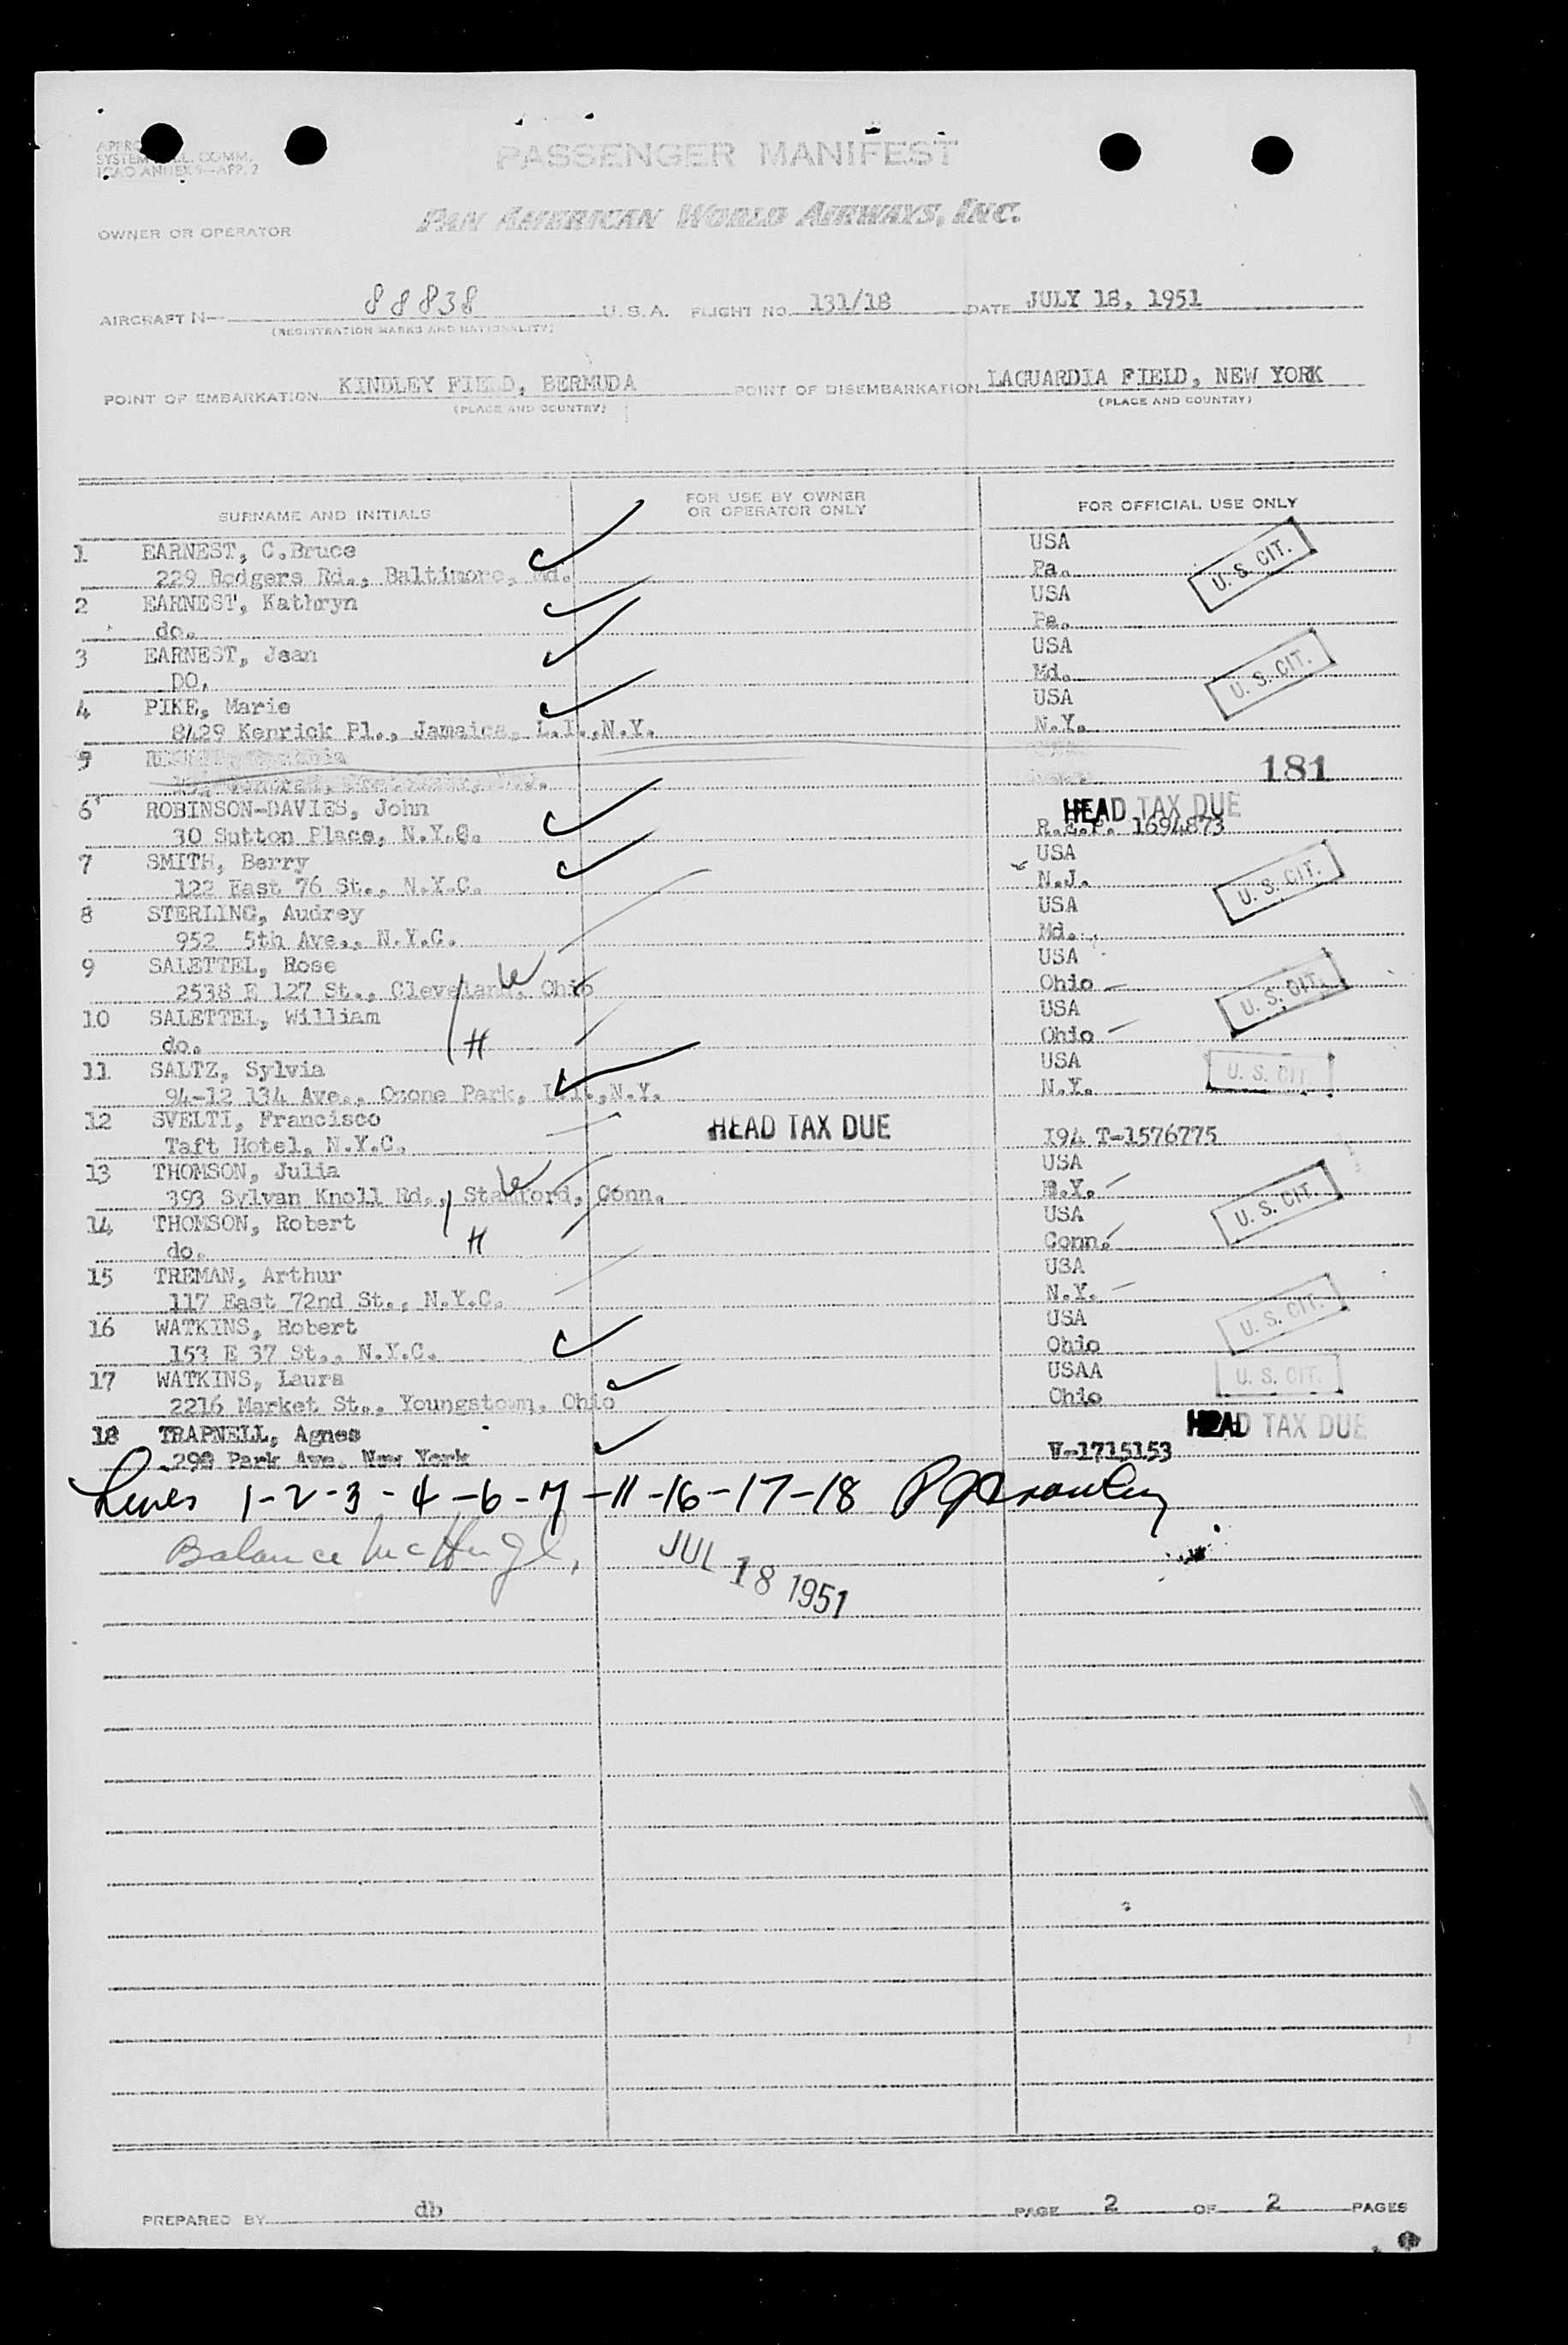 PASSENGER MANIFEST
SYSTEM COMM.
ICAO ANNEX 9—APP. 2
OWNER OR OPERATOR PAN AMERICAN WORLD AIRWAYS, INC.
AIRCRAFT N— 88838 U.S.A. FLIGHT NO. 131/18 DATE JULY 18, 1951
(REGISTRATION MARKS AND NATIONALITY)
POINT OF EMBARKATION KINDLEY FIELD, BERMUDA POINT OF DISEMBARKATION LAGUARDIA FIELD, NEW YORK
(PLACE AND COUNTRY) (PLACE AND COUNTRY)
SURNAME AND INITIALS FOR USE BY OWNER OR OPERATOR ONLY FOR OFFICIAL USE ONLY
1 EARNEST, C.Bruce USA
229 Rodgers Rd., Baltimore, Md. Pa. U. S. CIT.
2 EARNEST, Kathryn USA
do. Pa.
3 EARNEST, Jean USA
DO. Md. U. S. CIT.
4 PIKE, Marie USA
8429 Kenrick Pl., Jamaica, L.I.,N.Y. N.Y.
9
181
6 ROBINSON-DAVIES, John HEAD TAX DUE
30 Sutton Place, N.Y.C. R.E.P. 1694873
7 SMITH, Berry USA
122 East 76 St., N.Y.C. N.J. U. S. CIT.
8 STERLING, Audrey USA
952 5th Ave., N.Y.C. Md.
9 SALETTEL, Rose W USA
2538 E 127 St., Cleveland, Ohio Ohio U. S. CIT.
10 SALETTEL, William USA
do. H Ohio
11 SALTZ, Sylvia USA
94-12 134 Ave., Ozone Park, L.I.,N.Y. N.Y. U. S. CIT.
12 SVELTI, Francisco HEAD TAX DUE
Taft Hotel, N.Y.C. I94 T-1576775
13 THOMSON, Julia W USA
393 Sylvan Knoll Rd., Stamford, Conn. N.Y. U. S. CIT.
14 THOMSON, Robert USA
do. H Conn.
15 TREMAN, Arthur USA
117 East 72nd St., N.Y.C. N.Y.
16 WATKINS, Robert USA U. S. CIT.
153 E 37 St., N.Y.C. Ohio
17 WATKINS, Laura USAA U. S. CIT.
2216 Market St., Youngstown, Ohio Ohio
18 TRAPNELL, Agnes HEAD TAX DUE
290 Park Ave. New York V-1715153
Lines 1-2-3-4-6-7-11-16-17-18
Balance McHugh
JUL 18 1951
PREPARED BY db PAGE 2 OF 2 PAGES